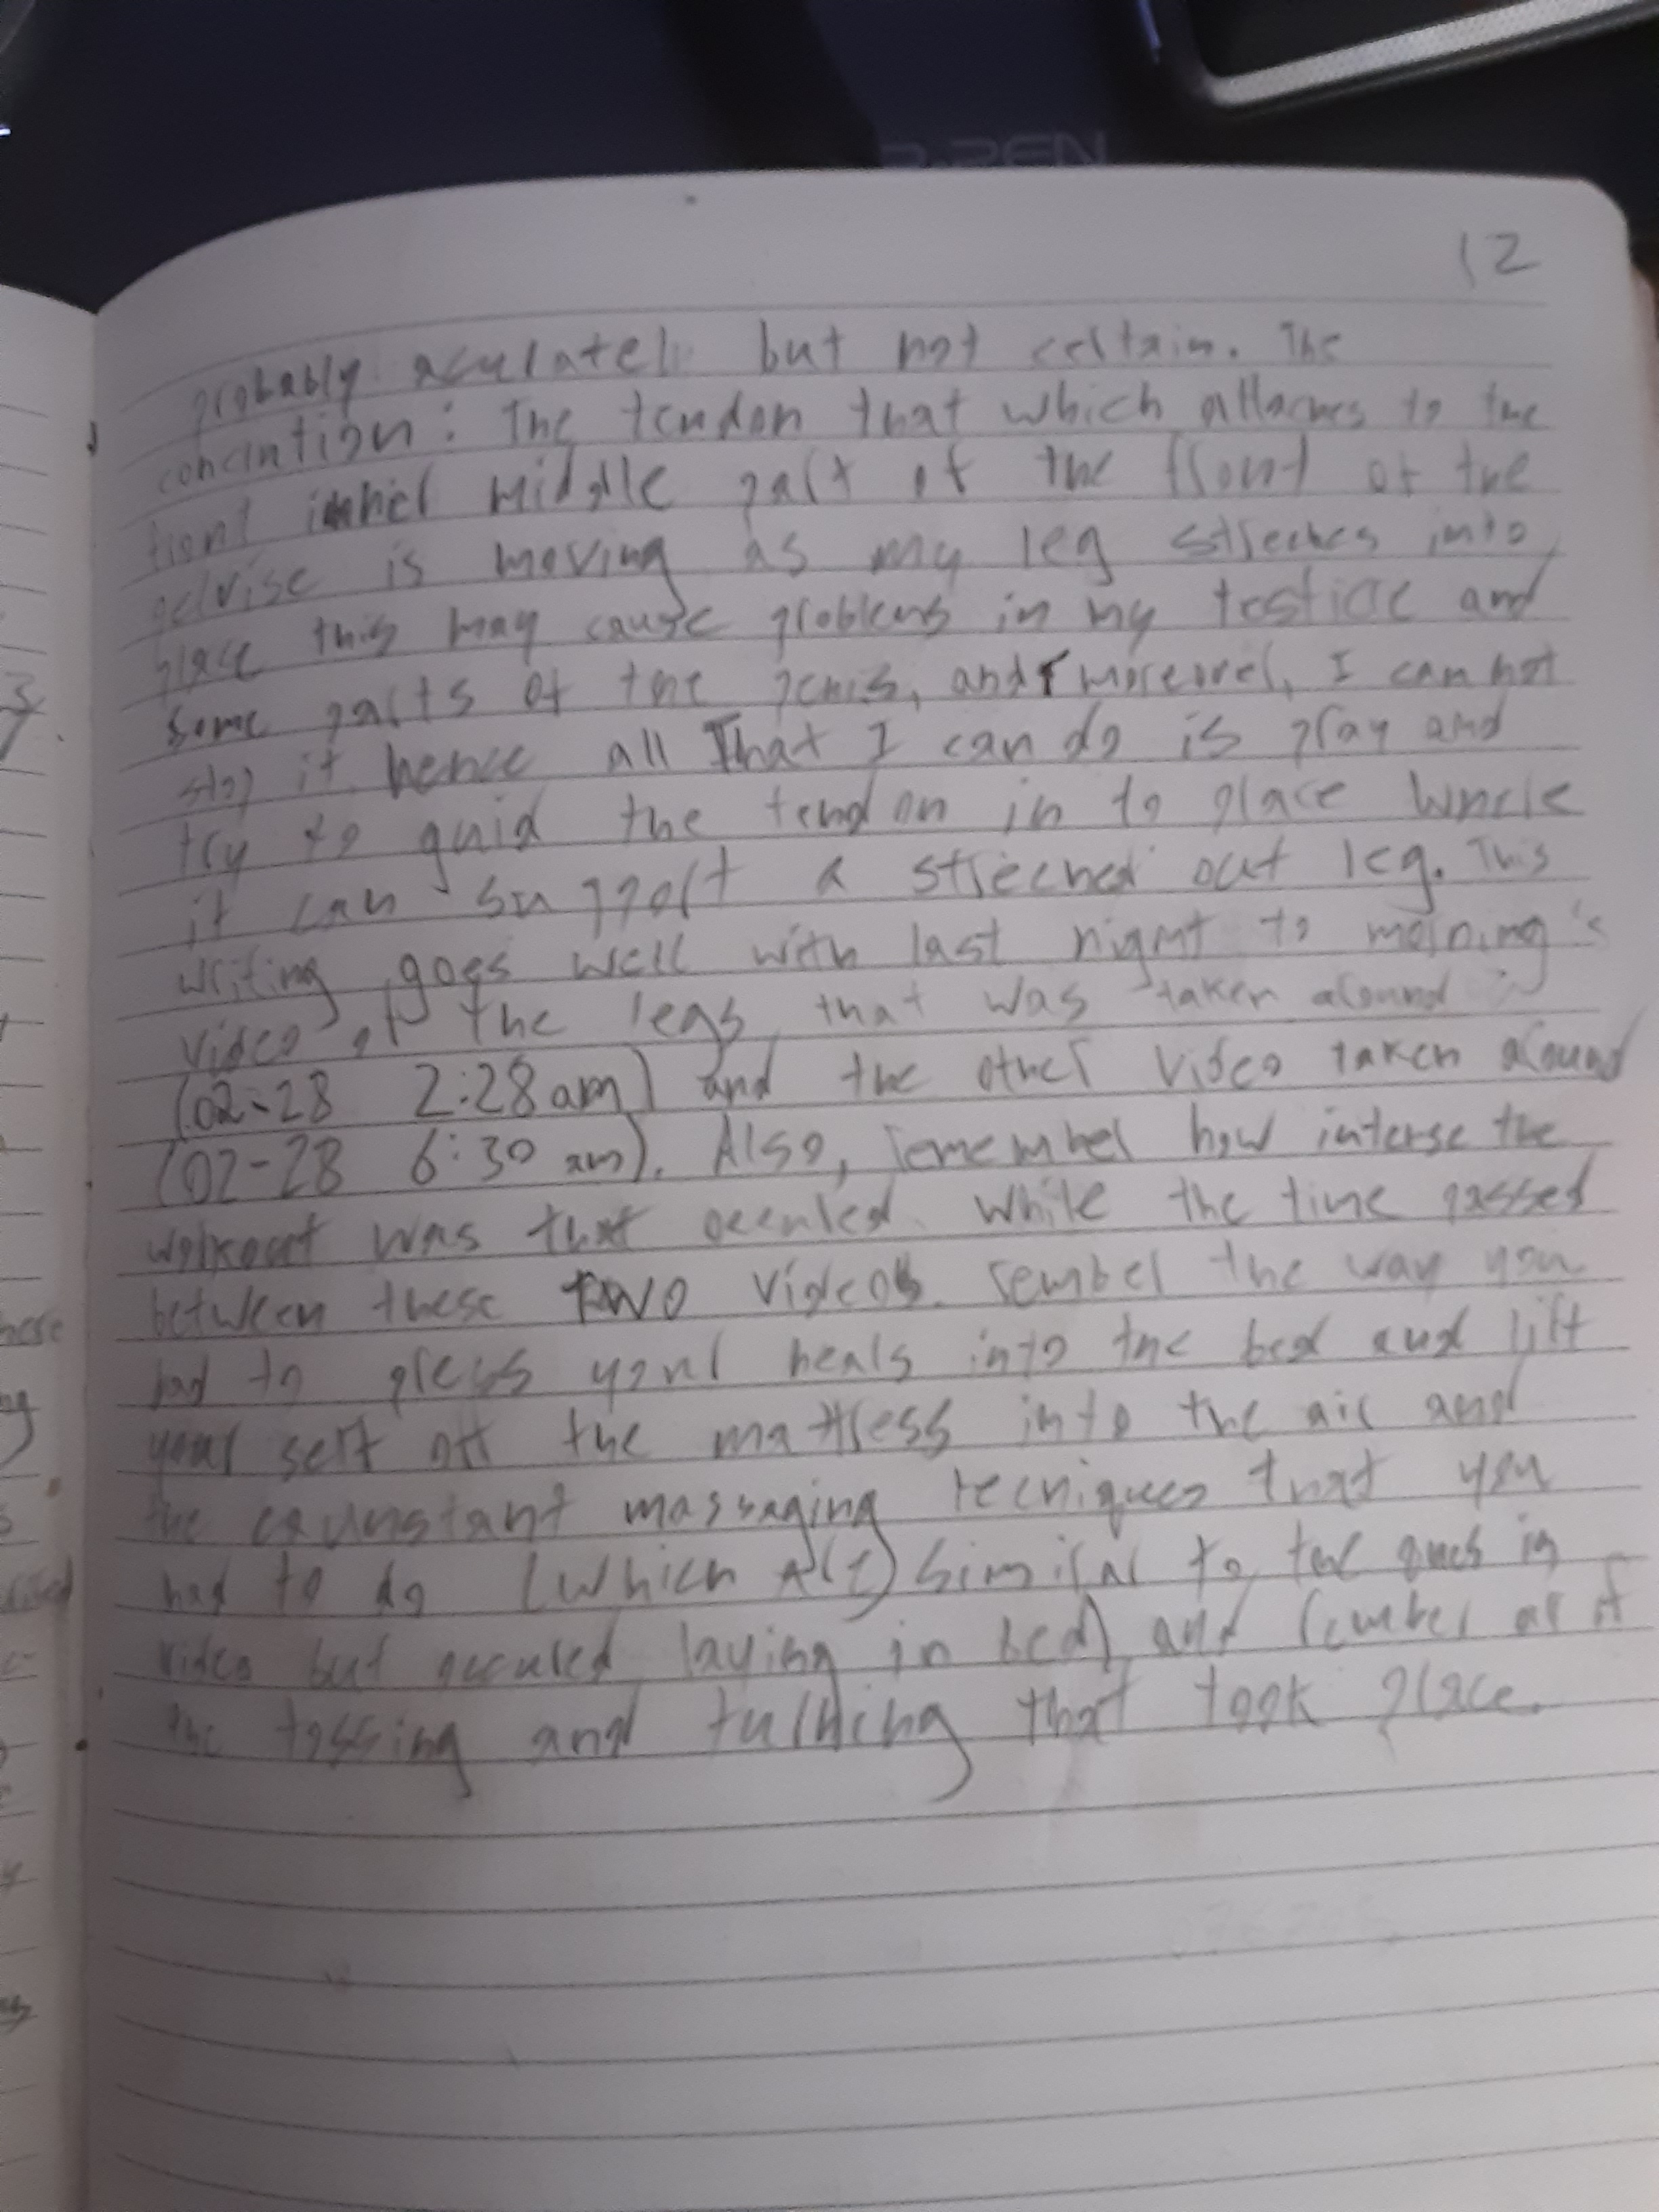 12
probably aculatel but not certain. The
concintion: The tendon that which attaches to the
front inner middle part of the front of the
pelvise is moving as my leg streches into
place this may cause problems in my testicle and
some parts of the penis, and moreover, I can not
stop it hence all That I can do is pray and
try to guid the tendon in to place where
it can support a streched out leg. This
writing goes well with last night to morning's
video of the legs that was taken around
(02-28 2:28am) and the other video taken around
(02-28 6:30 am). Also, remember how intense the
workout was that occurled. While the time passed
between these TWO videos. rember the way you
had to press your heals into the bed and lift
your self off the mattress into the air and
the counstant massaging tecniques that you
had to do (which are) similar to the ones in
video but occured laying in bed) and rember all of
the tossing and turning that took place.